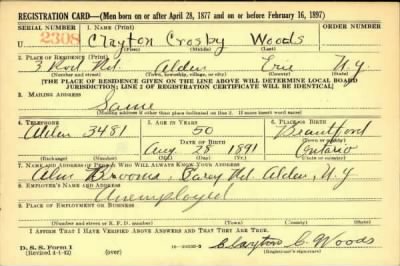 REGISTRATION CARD—(Men born on or after April 28, 1877 and on or before February 16, 1897)
SERIAL NUMBER 1. NAME (Print) ORDER NUMBER
U 2308 Clayton Crosby Woods
(First) (Middle) (Last)
2. PLACE OF RESIDENCE (Print)
3 Rod Rd. Alden Erie N.Y
(Number and street) (Town, township, village, or city) (County) (State)
[THE PLACE OF RESIDENCE GIVEN ON THE LINE ABOVE WILL DETERMINE LOCAL BOARD
JURISDICTION; LINE 2 OF REGISTRATION CERTIFICATE WILL BE IDENTICAL]
3. MAILING ADDRESS
Same
(Mailing address if other than place indicated on line 2. If same insert word same)
4. TELEPHONE 5. AGE IN YEARS 6. PLACE OF BIRTH
Alden 3481 50 Brantford
DATE OF BIRTH (Town or county)
Aug 28 1891 Ontario
(Exchange) (Number) (Mo.) (Day) (Yr.) (State or country)
7. NAME AND ADDRESS OF PERSON WHO WILL ALWAYS KNOW YOUR ADDRESS
Rd. Alden, N.Y
8. EMPLOYER'S NAME AND ADDRESS
Unemployed
9. PLACE OF EMPLOYMENT OR BUSINESS
(Number and street or R. F. D. number) (Town) (County) (State)
I AFFIRM THAT I HAVE VERIFIED ABOVE ANSWERS AND THAT THEY ARE TRUE.
D. S. S. Form 1
(Revised 4-1-42) (over) Clayton C. Woods
(Registrant's signature)